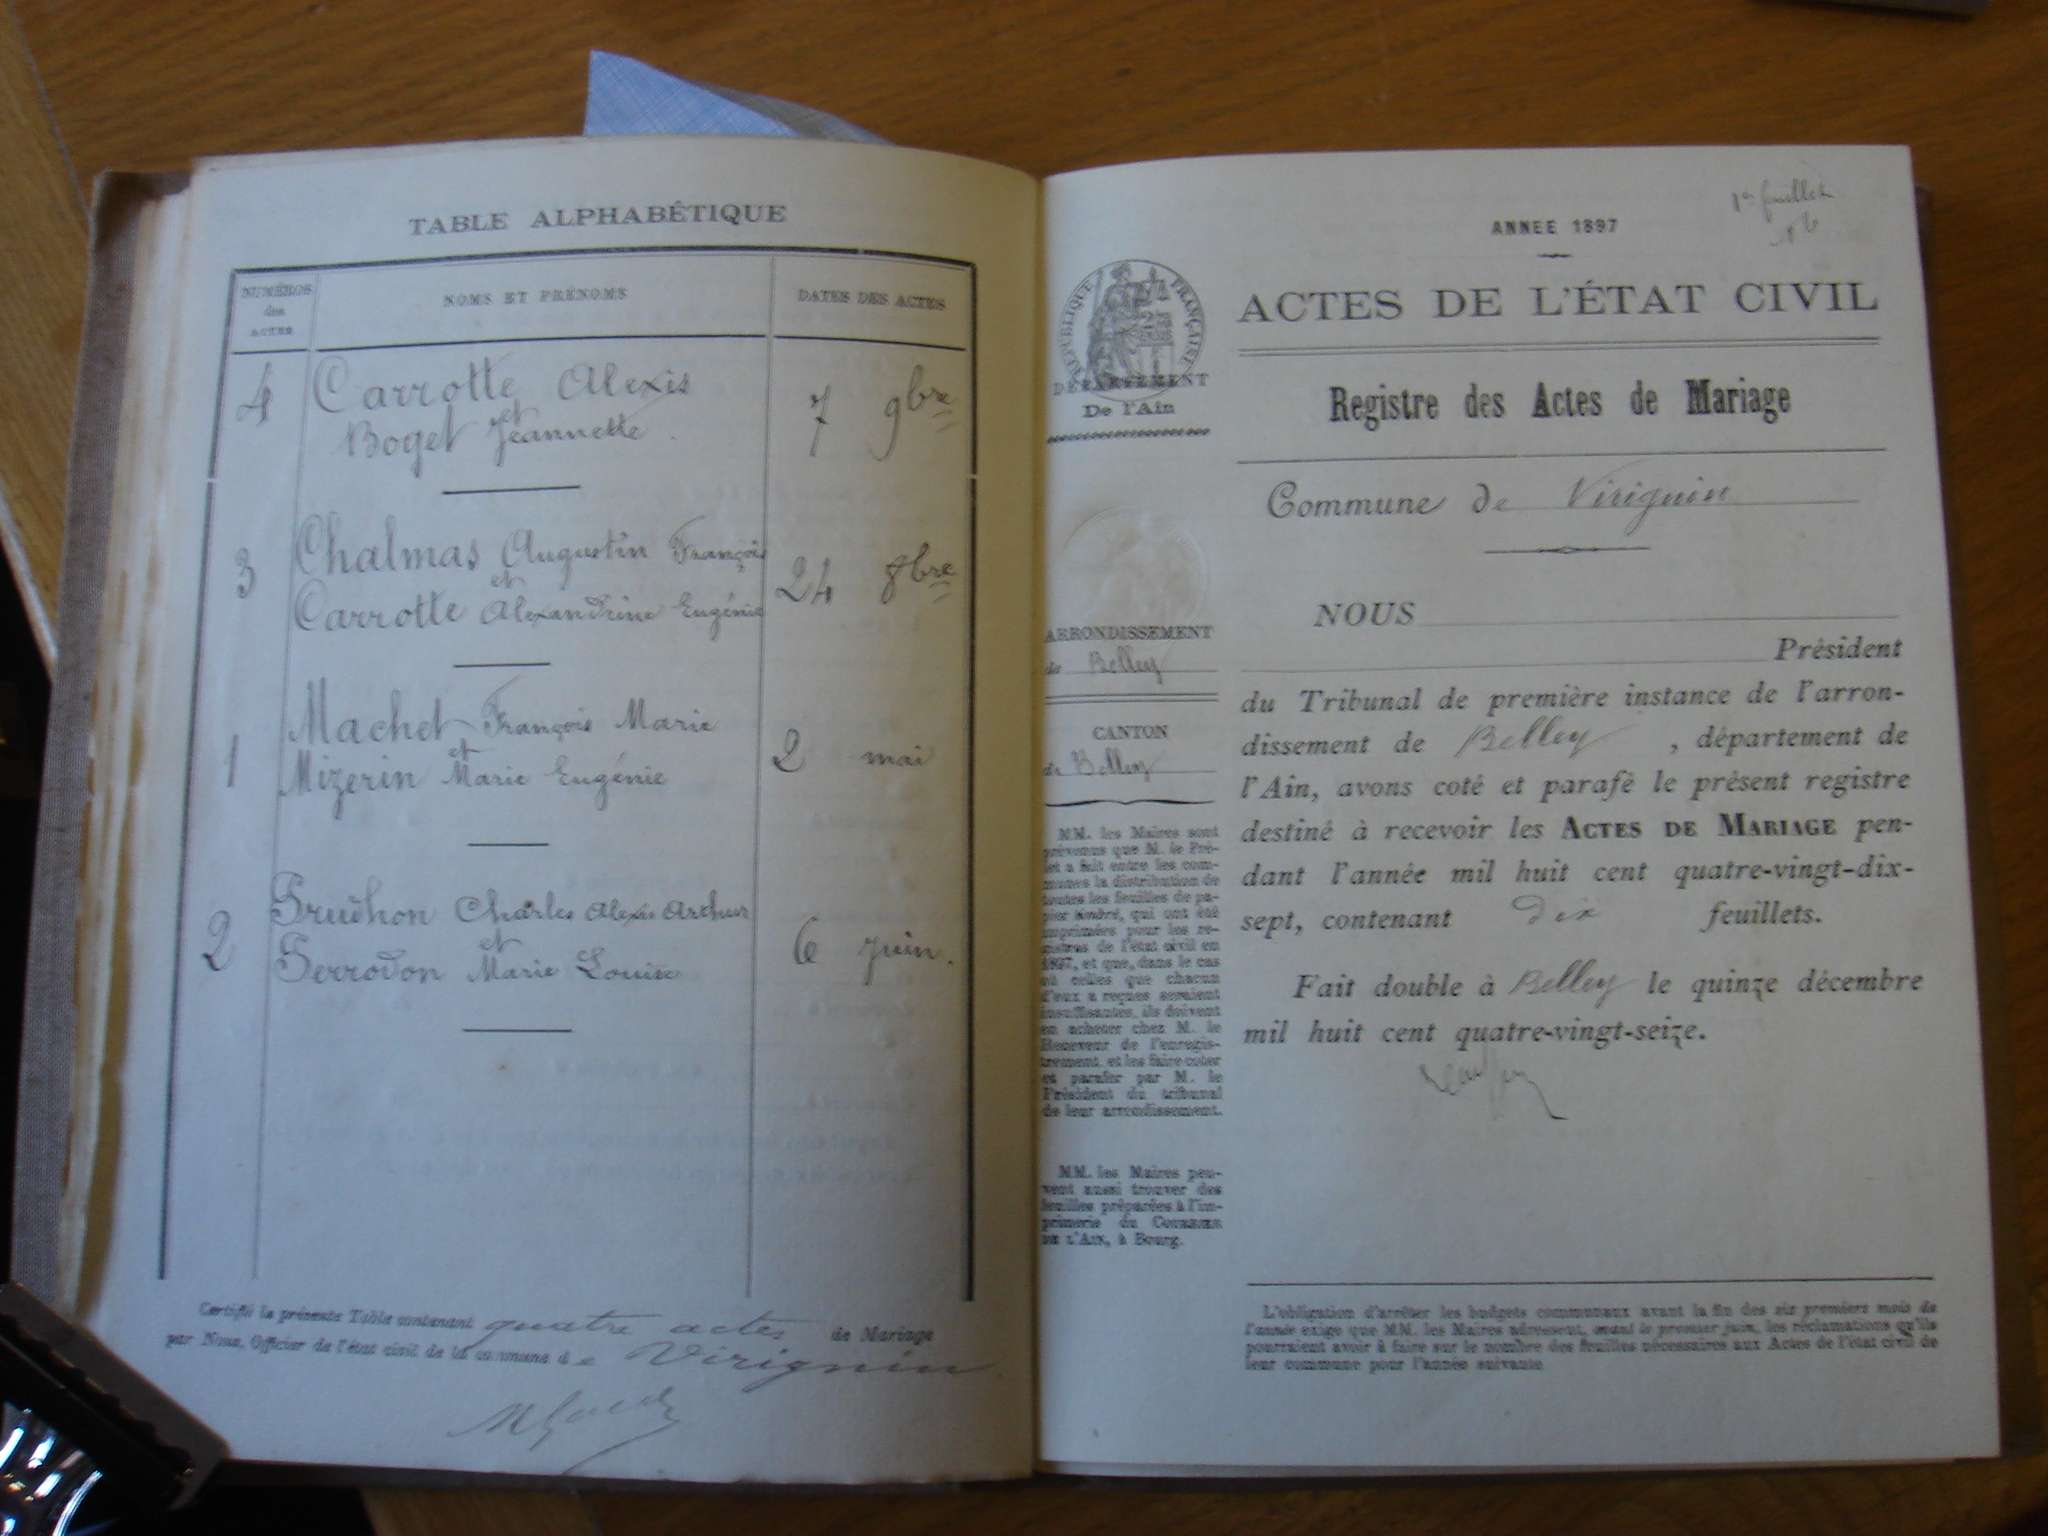 TABLE ALPHABÉTIQUE
NUMÉROS
des
ACTES
NOMS ET PRÉNOMS
DATES DES ACTES
4
Carrotte Alexis
et
Boget Jeannette
7 9bre
3
Chalmas Augustin François
et
Carrotte Alexandrine Eugénie
24 8bre
1
Machet François Marie
et
Mizerin Marie Eugénie
2 mai
2
Prudhon Charles Alexis Arthur
et
Perrodon Marie Louise
6 juin.
Certifié la présente Table contenant quatre actes de Mariage
par Nous, Officier de l'état civil de la commune de Virignin
1er feuillet
ANNEE 1897
RÉPUBLIQUE FRANÇAISE
DÉPARTEMENT
De l'Ain
ARRONDISSEMENT
de Belley
CANTON
de Belley
MM. les Maires sont
prévenus que M. le Pré-
fet a fait entre les com-
munes la distribution de
toutes les feuilles de pa-
pier timbré, qui ont été
imprimées pour les re-
gistres de l'état civil en
1897, et que, dans le cas
où celles que chacun
d'eux a reçues seraient
insuffisantes, ils doivent
en acheter chez M. le
Receveur de l'enregis-
trement, et les faire coter
et parafer par M. le
Président du tribunal
de leur arrondissement.
MM. les Maires peu-
vent aussi trouver des
feuilles préparées à l'im-
primerie du COURRIER
DE L'AIN, à Bourg.
ACTES DE L'ÉTAT CIVIL
Registre des Actes de Mariage
Commune de Virignin
NOUS
Président
du Tribunal de première instance de l'arron-
dissement de Belley, département de
l'Ain, avons coté et parafé le présent registre
destiné à recevoir les ACTES DE MARIAGE pen-
dant l'année mil huit cent quatre-vingt-dix-
sept, contenant dix feuillets.
Fait double à Belley le quinze décembre
mil huit cent quatre-vingt-seize.
L'obligation d'arrêter les budgets communaux avant la fin des six premiers mois de
l'année exige que MM. les Maires adressent, avant le premier juin, les réclamations qu'ils
pourraient avoir à faire sur le nombre des feuilles nécessaires aux Actes de l'état civil de
leur commune pour l'année suivante